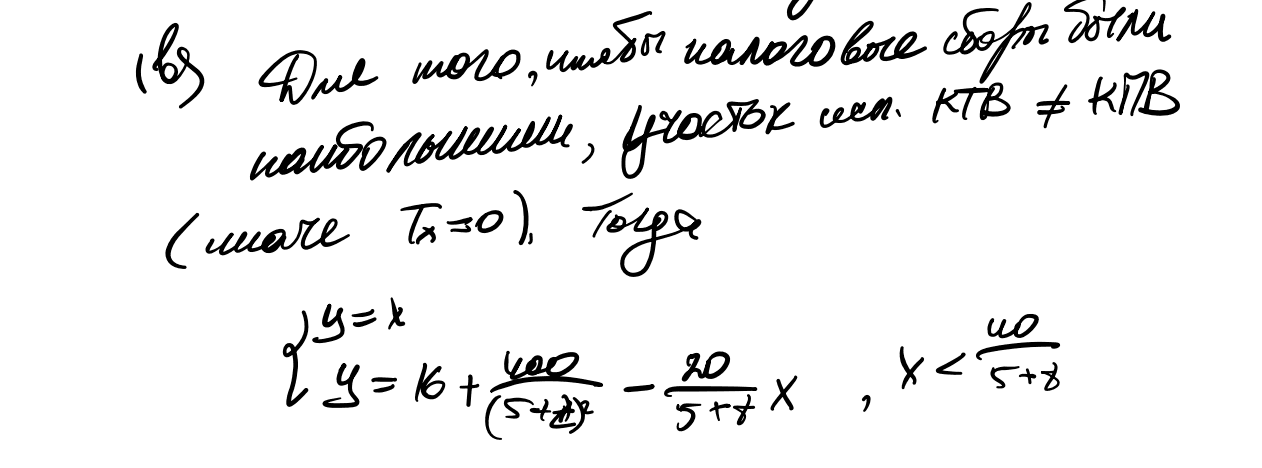 1в) Для того, чтобы налоговые сборы были
наибольшими, участок исп. КТВ ≠ КПВ
(иначе Tx=0). Тогда
{ y = x
y = 16 + 400/(5+t)² − 20/(5+t) x , x < 40/(5+t)